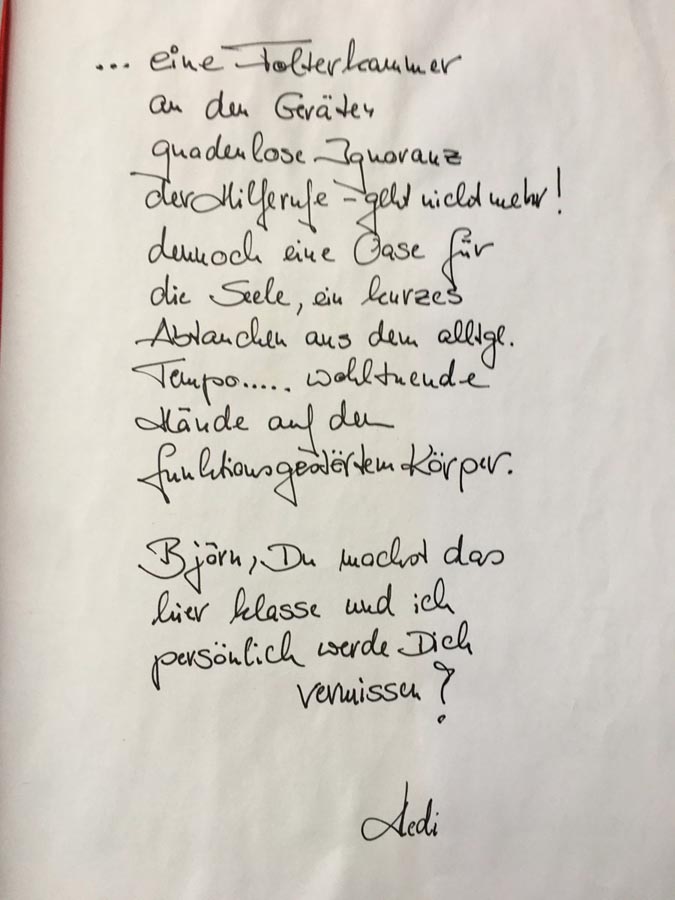 ... eine Folterkammer
an den Geräten
gnadenlose Ignoranz
der Hilferufe - geht nicht mehr!
dennoch eine Oase für
die Seele, ein kurzes
Abtauchen aus dem alltgl.
Tempo..... wohltuende
Hände auf den
funktionsgestörtem Körper.
Björn, Du machst das
hier klasse und ich
persönlich werde Dich
vermissen?